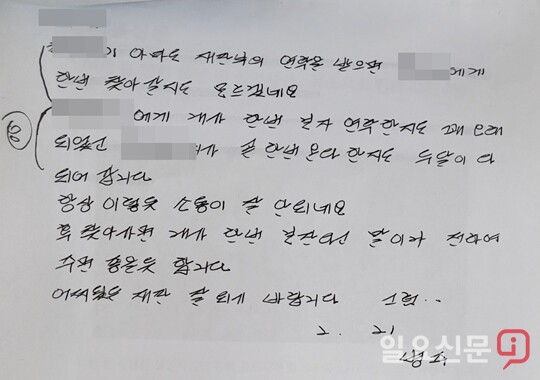 이 아마도 재판부의 연락을 받으면 에게
한번 찾아 갈지도 모르겠네요
에게 제가 한번 보자 연락한지도 꽤 오래
되었고 가 한번 온다 한지도 두달이 다
되어 갑니다
항상 이렇듯 소통이 잘 안되네요
혹 찾아가면 제가 한번 보잔다고 말이라 전하여
주면 좋을듯 합니다
어찌됐든 재판 잘 되게 바랍니다
2. 21
일요신문